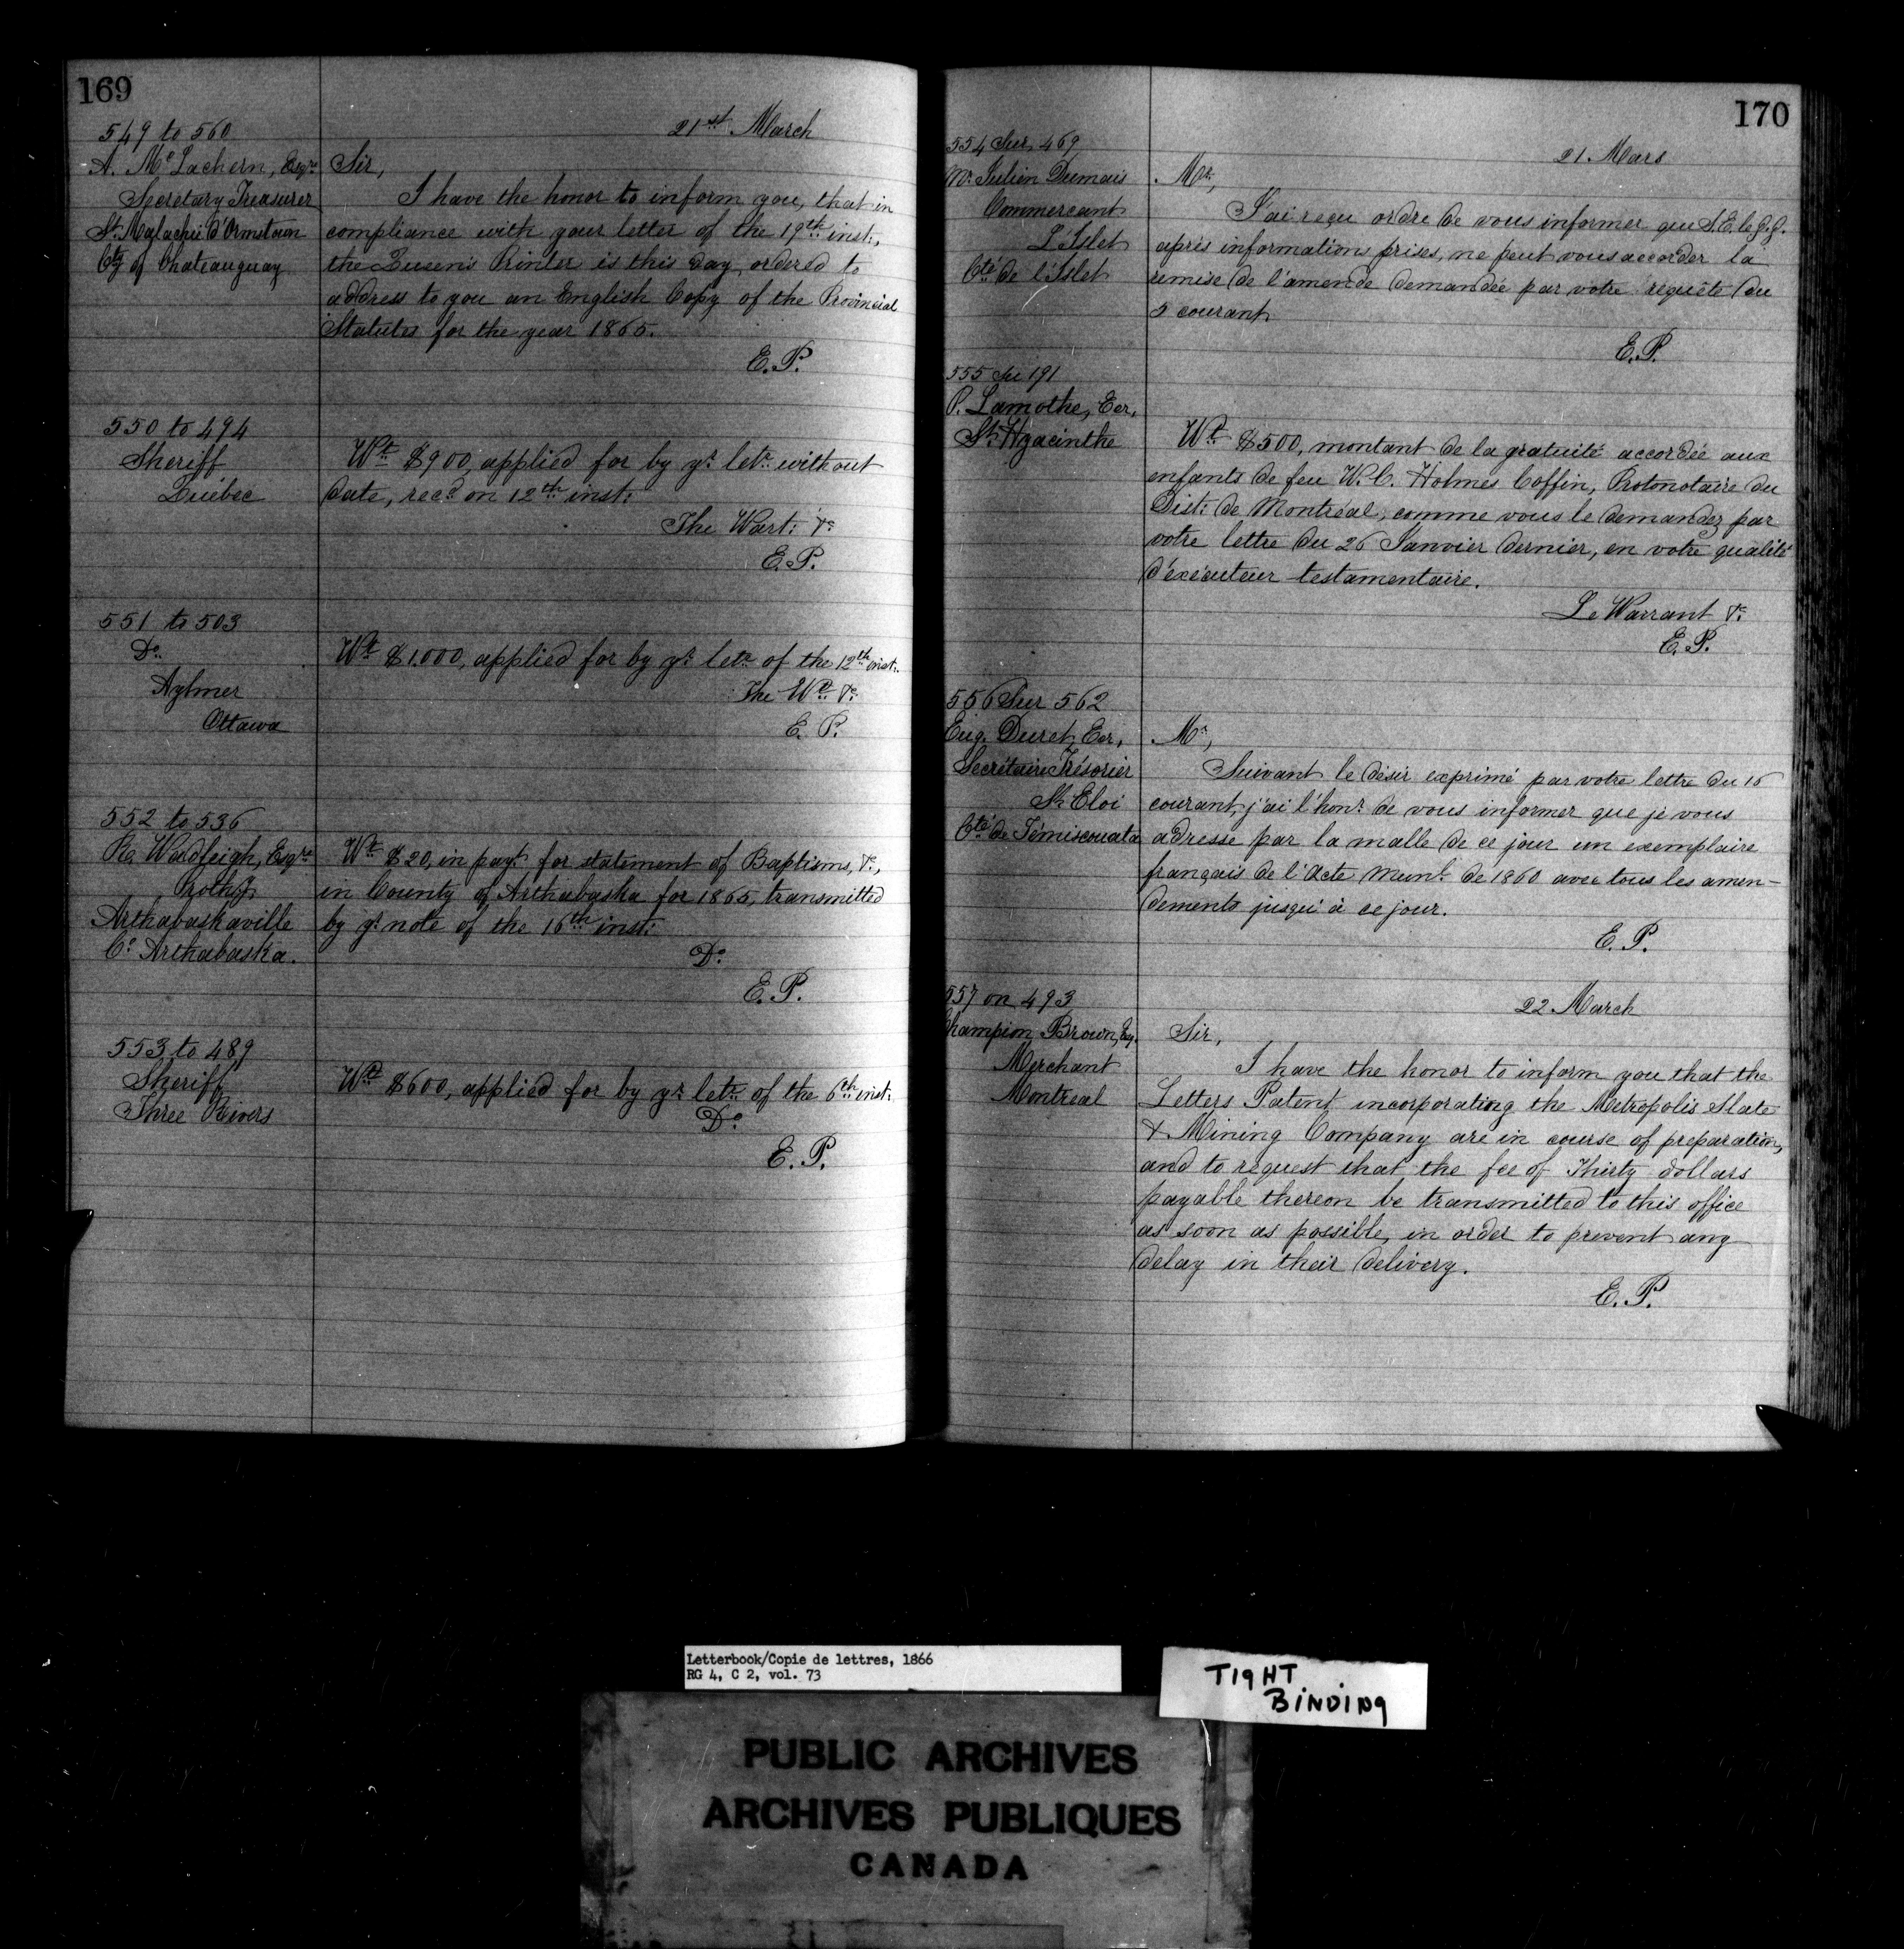 169
549 to 560
A. McLachern, Esqre
Secretary Treasurer
St. Malachie d'Ormstown
Cty of Chateauguay
21st March
Sir,
I have the honor to inform you, that in
compliance with your letter of the 19th inst:,
the Queen's Printer is this day ordered to
address to you an English Copy of the Provincial
Statutes for the year 1865.
E.P.
550 to 494
Sheriff
Québec
Wt $900, applied for by yr letr without
date, recd on 12th inst:
The Wart: &c
E.P.
551 to 503
Do
Aylmer
Ottawa
Wt $1.000, applied for by yr letr of the 12th inst:
The Wt &c
E.P.
552 to 536
Wadleigh, Esqre
Prothy
Arthabaskaville
Co Arthabaska.
Wt $20, in payt for statement of Baptisms, &c,
in County of Arthabaska for 1865, transmitted
by yr note of the 16th inst:
Do
E.P.
553 to 489
Sheriff
Three Rivers
Wt $600, applied for by yr letr of the 6th inst:
Do
E.P.
170
554 Sur 469
Mr Julien Dumais
Commercant
L'Islet
Cté de l'Islet
21 Mars
Mr,
J'ai reçu ordre de vous informer que S.E. le G.G.
après informations prises, ne peut vous accorder la
remise de l'amende demandée par votre requête du
5 courant
E.P.
555 Su 191
P. Lamothe, Ecr,
St. Hyacinthe
Wt $500, montant de la gratuité accordée aux
enfants de feu W.C. Holmes Coffin, Protonotaire du
Dist: de Montréal, comme vous le demandez par
votre lettre du 26 Janvier dernier, en votre qualité
d'exécuteur testamentaire.
Le Warrant &c
E.P.
556 Sur 562
Eug. Duret, Ecr,
Secrétaire Trésorier
St Eloi
Cté de Témiscouata
Mr,
Suivant le désir exprimé par votre lettre du 16
courant, j'ai l'honr de vous informer que je vous
adresse par la malle de ce jour un exemplaire
français de l'Acte Munl de 1860 avec tous les amen-
dements jusqu'à ce jour.
E.P.
557 on 493
Champion Brown, Esq.
Merchant
Montreal
22 March
Sir,
I have the honor to inform you that the
Letters Patent incorporating the Metropolis Slate
& Mining Company are in course of preparation,
and to request that the fee of Thirty dollars
payable thereon be transmitted to this office
as soon as possible, in order to prevent any
delay in their delivery.
E.P.
Letterbook/Copie de lettres, 1866
RG 4, C 2, vol. 73
TIGHT
BINDING
PUBLIC ARCHIVES
ARCHIVES PUBLIQUES
CANADA